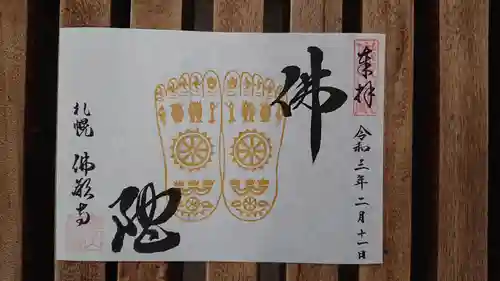 奉拝
令和三年二月十一日
佛
陀
札幌
佛願寺